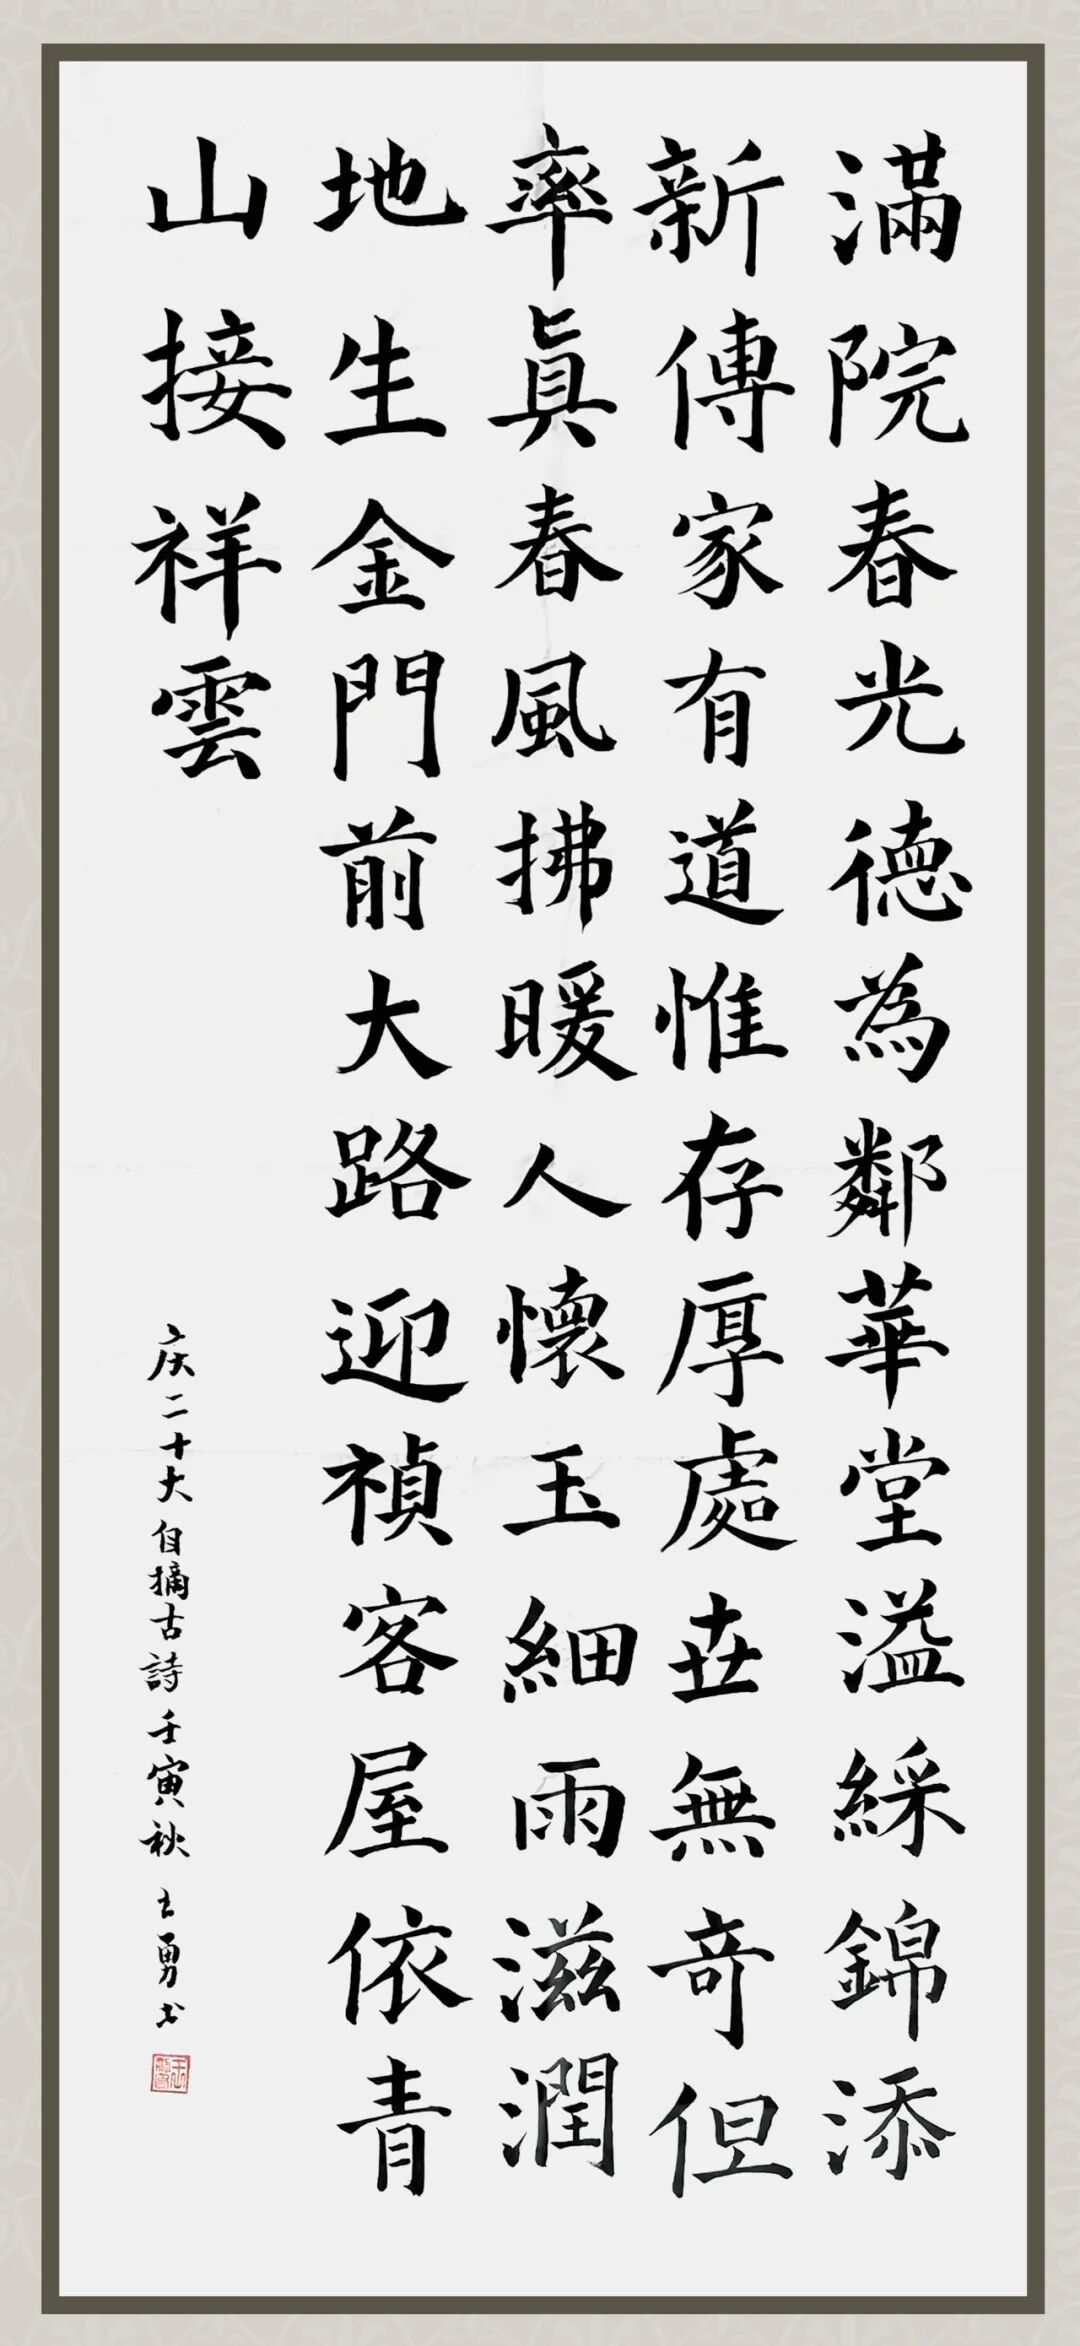 滿院春光德為鄰華堂溢綵錦添
新傳家有道惟存厚處世無奇但
率真春風拂暖人懷玉細雨滋潤
地生金門前大路迎禎客屋依青
山接祥雲
庆二十大自摘古詩壬寅秋王勇书